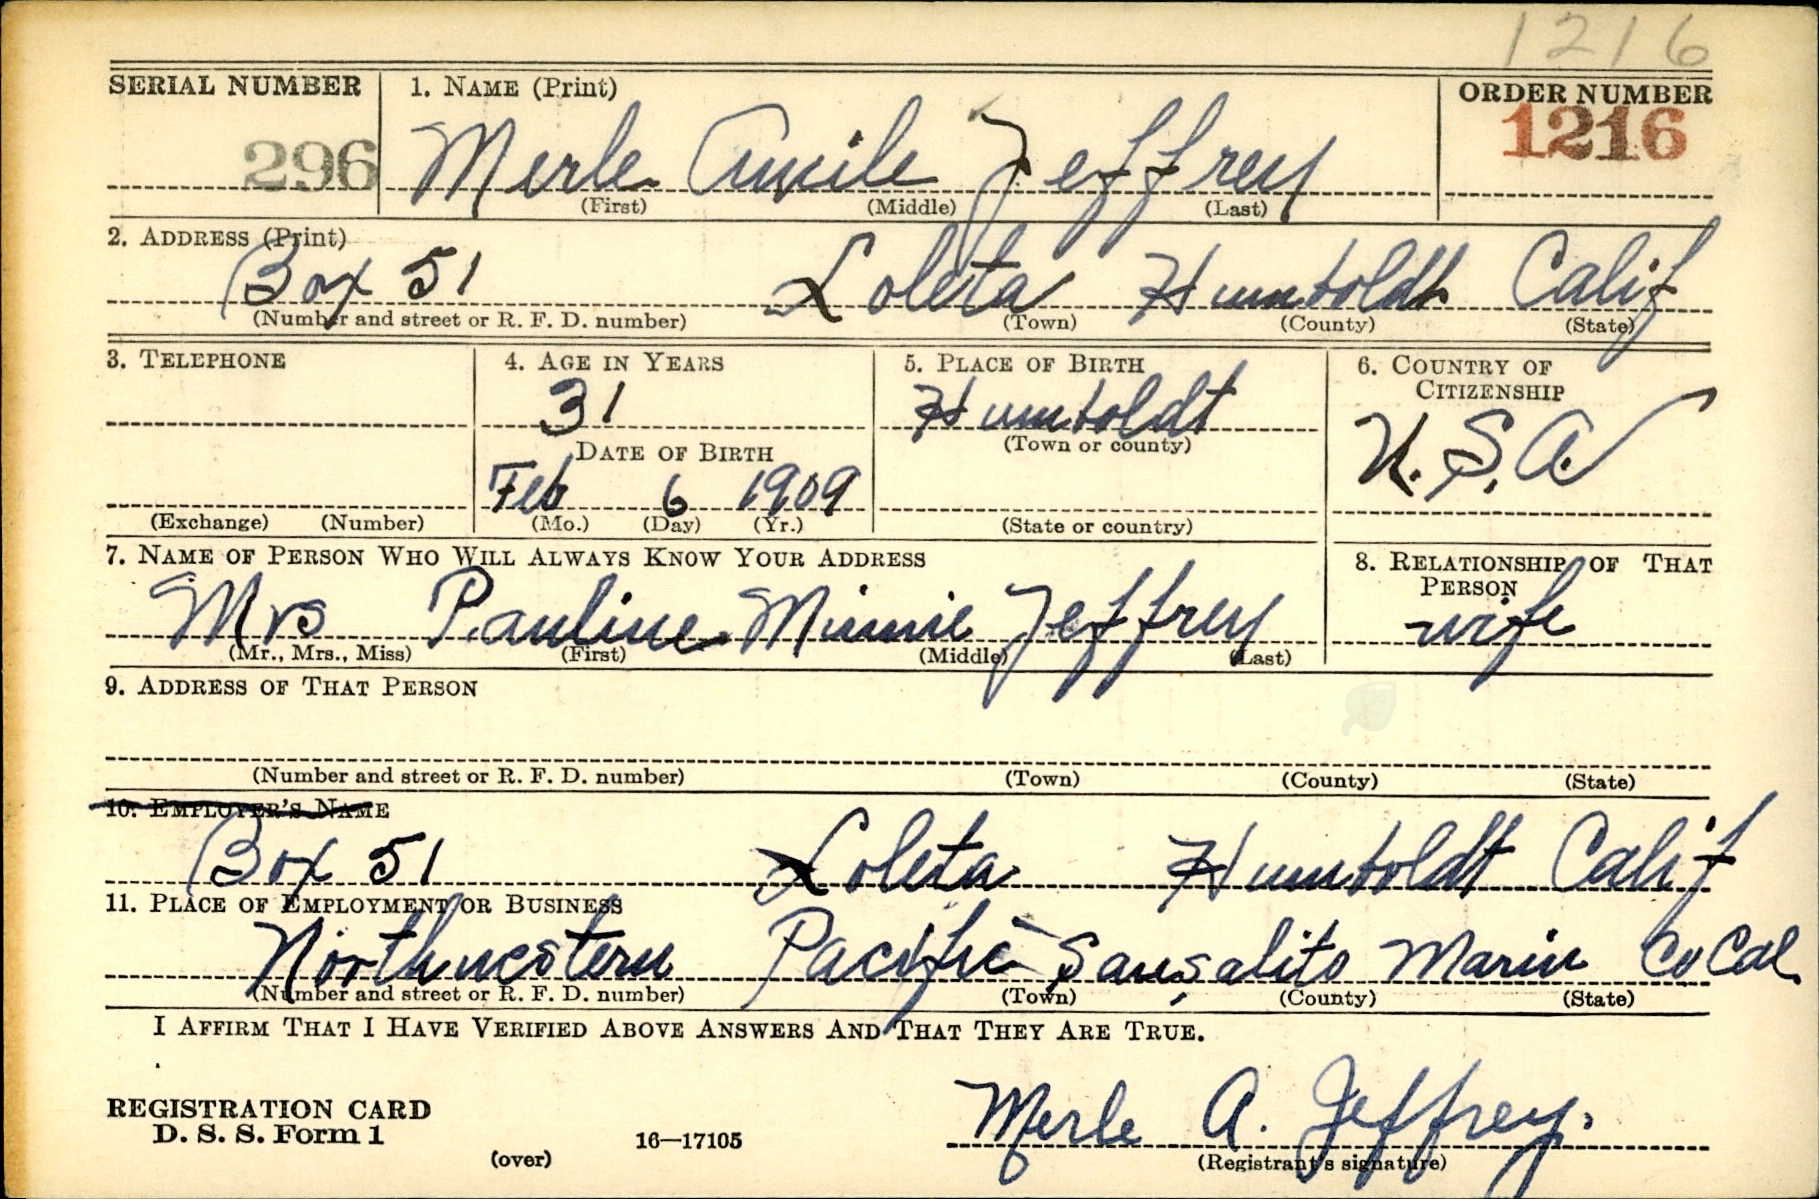 1216
SERIAL NUMBER 1. NAME (Print) ORDER NUMBER
296 Merle Jeffrey 1216
(First) (Middle) (Last)
2. ADDRESS (Print)
Box 51 Loleta Humboldt Calif
(Number and street or R. F. D. number) (Town) (County) (State)
3. TELEPHONE 4. AGE IN YEARS 5. PLACE OF BIRTH 6. COUNTRY OF
CITIZENSHIP
31 Humboldt U.S.A.
DATE OF BIRTH (Town or county)
Feb 6 1909
(Exchange) (Number) (Mo.) (Day) (Yr.) (State or country)
7. NAME OF PERSON WHO WILL ALWAYS KNOW YOUR ADDRESS 8. RELATIONSHIP OF THAT
PERSON
Mrs Pauline Minnie Jeffrey wife
(Mr., Mrs., Miss) (First) (Middle) (Last)
9. ADDRESS OF THAT PERSON
(Number and street or R. F. D. number) (Town) (County) (State)
10. EMPLOYER'S NAME
Box 51 Loleta Humboldt Calif
11. PLACE OF EMPLOYMENT OR BUSINESS
Northwestern Pacific Sausalito Marin Co Cal
(Number and street or R. F. D. number) (Town) (County) (State)
I AFFIRM THAT I HAVE VERIFIED ABOVE ANSWERS AND THAT THEY ARE TRUE.
REGISTRATION CARD
D. S. S. Form 1 16—17105 Merle A. Jeffrey.
(over) (Registrant's signature)